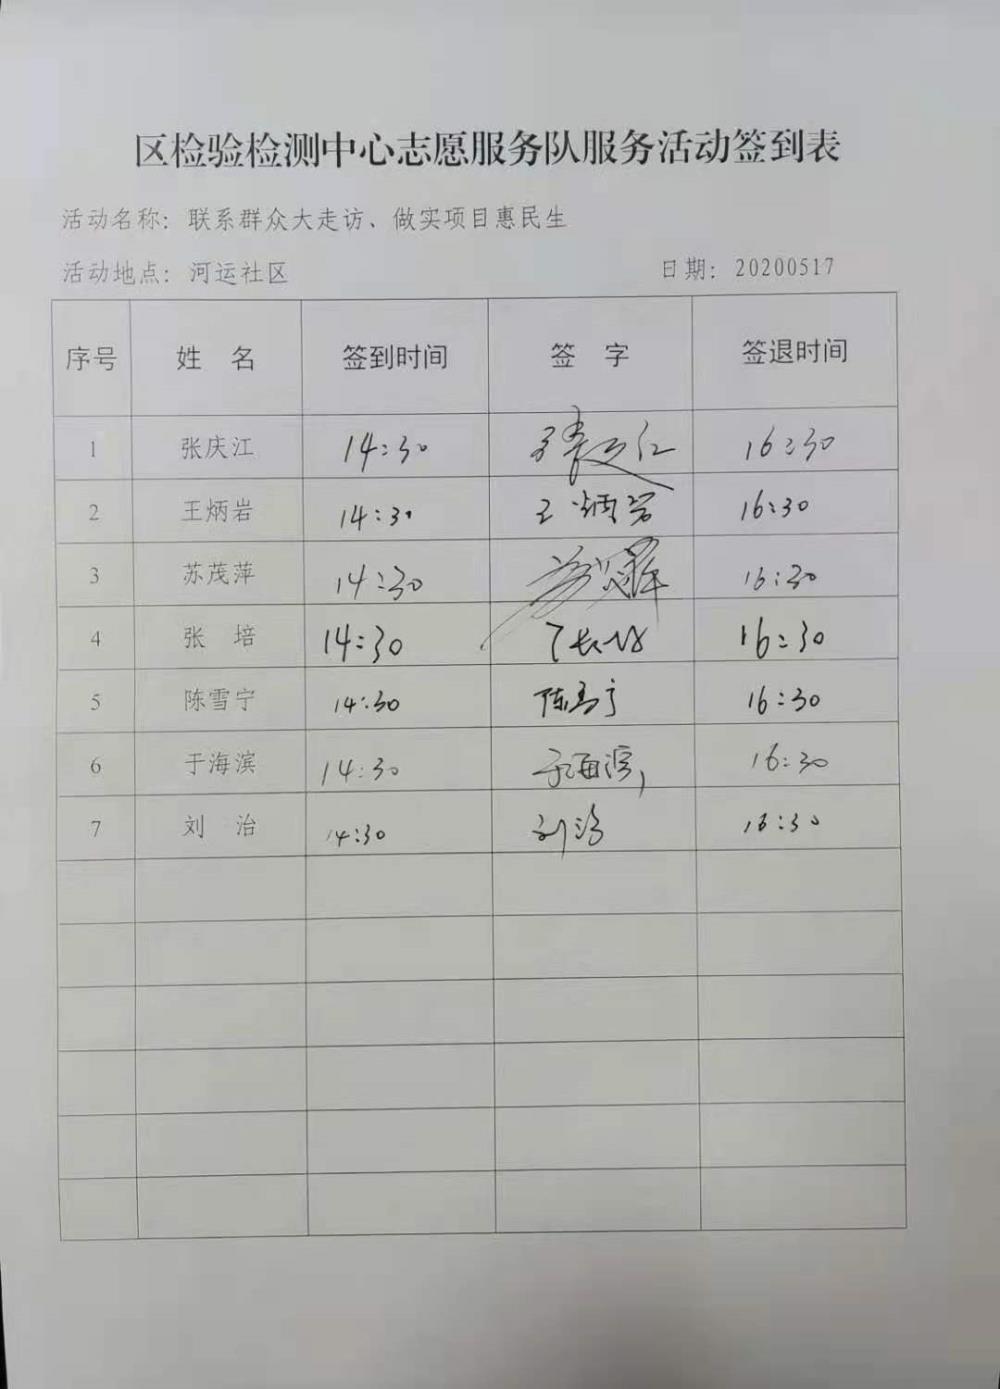 区检验检测中心志愿服务队服务活动签到表
活动名称：联系群众大走访、做实项目惠民生
活动地点：河运社区 日期：20200517
序号 姓 名 签到时间 签 字 签退时间
1 张庆江 14:30 张庆江 16:30
2 王炳岩 14:30 王炳岩 16:30
3 苏茂萍 14:30 苏茂萍 16:30
4 张 培 14:30 张培 16:30
5 陈雪宁 14:30 陈雪宁 16:30
6 于海滨 14:30 于海滨 16:30
7 刘 治 14:30 刘治 16:30